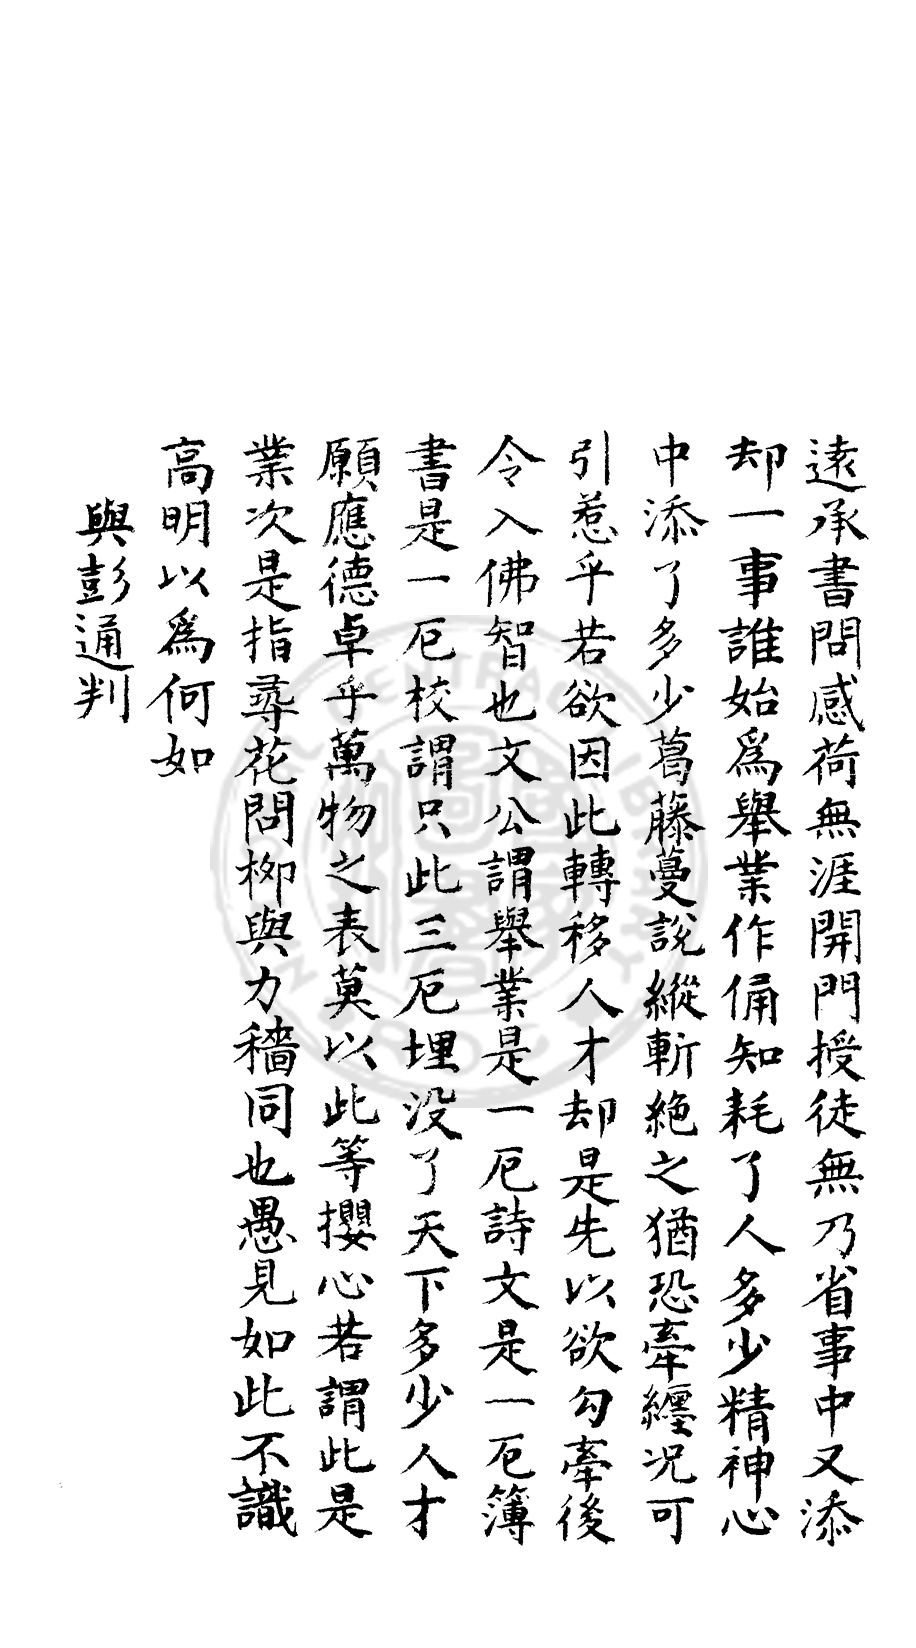 遠承書問感荷無涯開門授徒無乃省事中又添
却一事誰始爲舉業作俑知耗了人多少精神心
中添了多少葛藤蔓說縱斬絶之猶恐牽纏况可
引惹乎若欲因此轉移人才却是先以欲勾牽後
令入佛智也文公謂舉業是一厄詩文是一厄簿
書是一厄校謂只此三厄埋没了天下多少人才
願應德卓乎萬物之表莫以此等攖心若謂此是
業次是指尋花問柳與力穡同也愚見如此不識
高明以爲何如
與彭通判